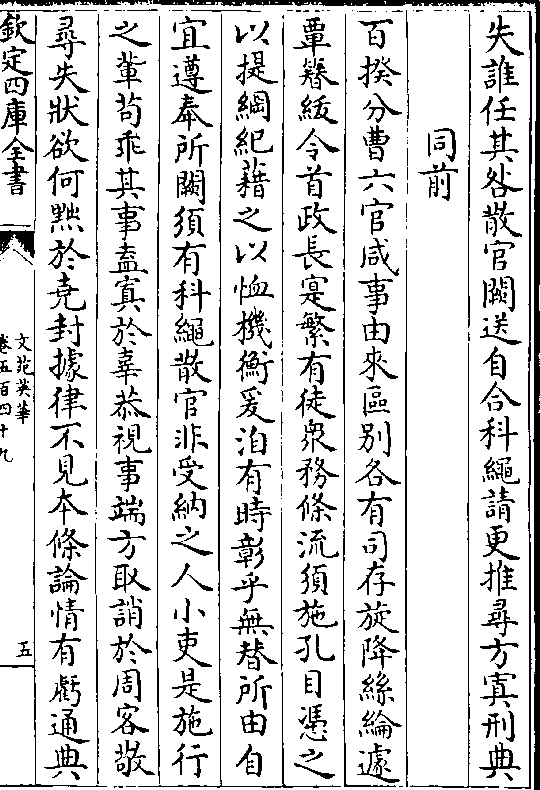 失誰任其咎散官闕送自合科繩請更推尋方寘刑典
同前
百揆分曹六官咸事由來區别各有司存旋降絲綸遽
覃簪紱令首政長寔繁有徒衆務條流須施孔目憑之
以提綱紀藉之以恤機衡爰洎有時彰乎無替所由自
宜遵奉所闕須有科繩散官非受納之人小吏是施行
之輩苟乖其事盍寘於辜恭視事端方取誚於周客敬
尋失狀欲何黙於堯封據律不見本條論情有虧通典
欽定四庫全書
文苑英華
卷五百四十九
五